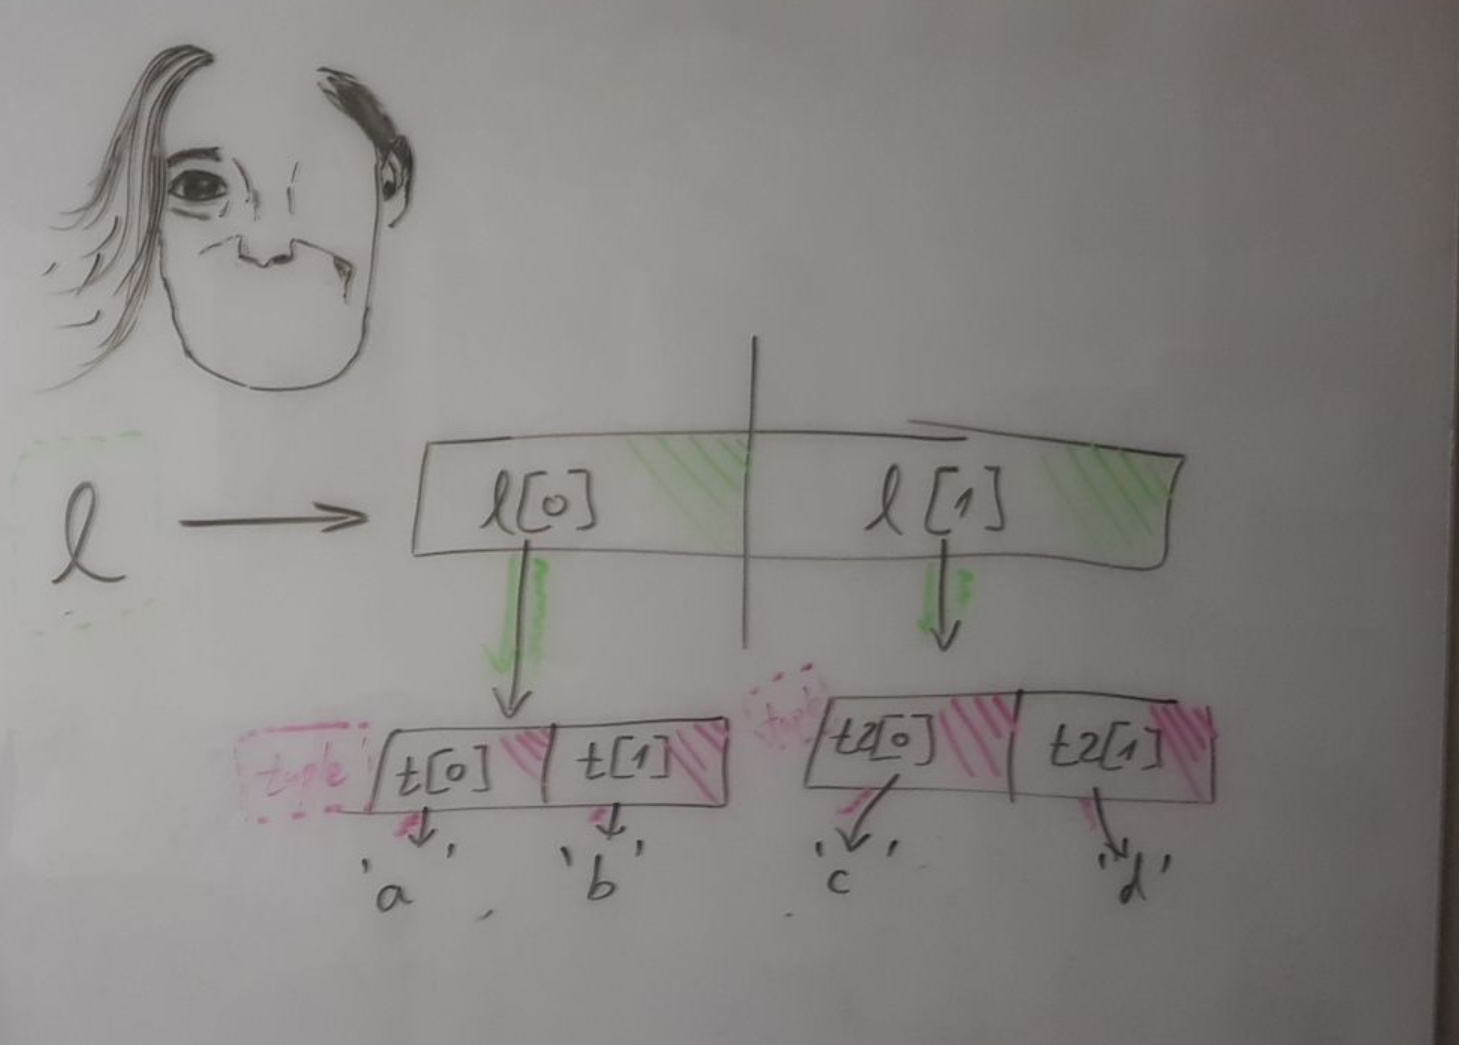 l l[0] l[1]
tuple t[0] t[1] tuple t2[0] t2[1]
'a' 'b' 'c' 'd'